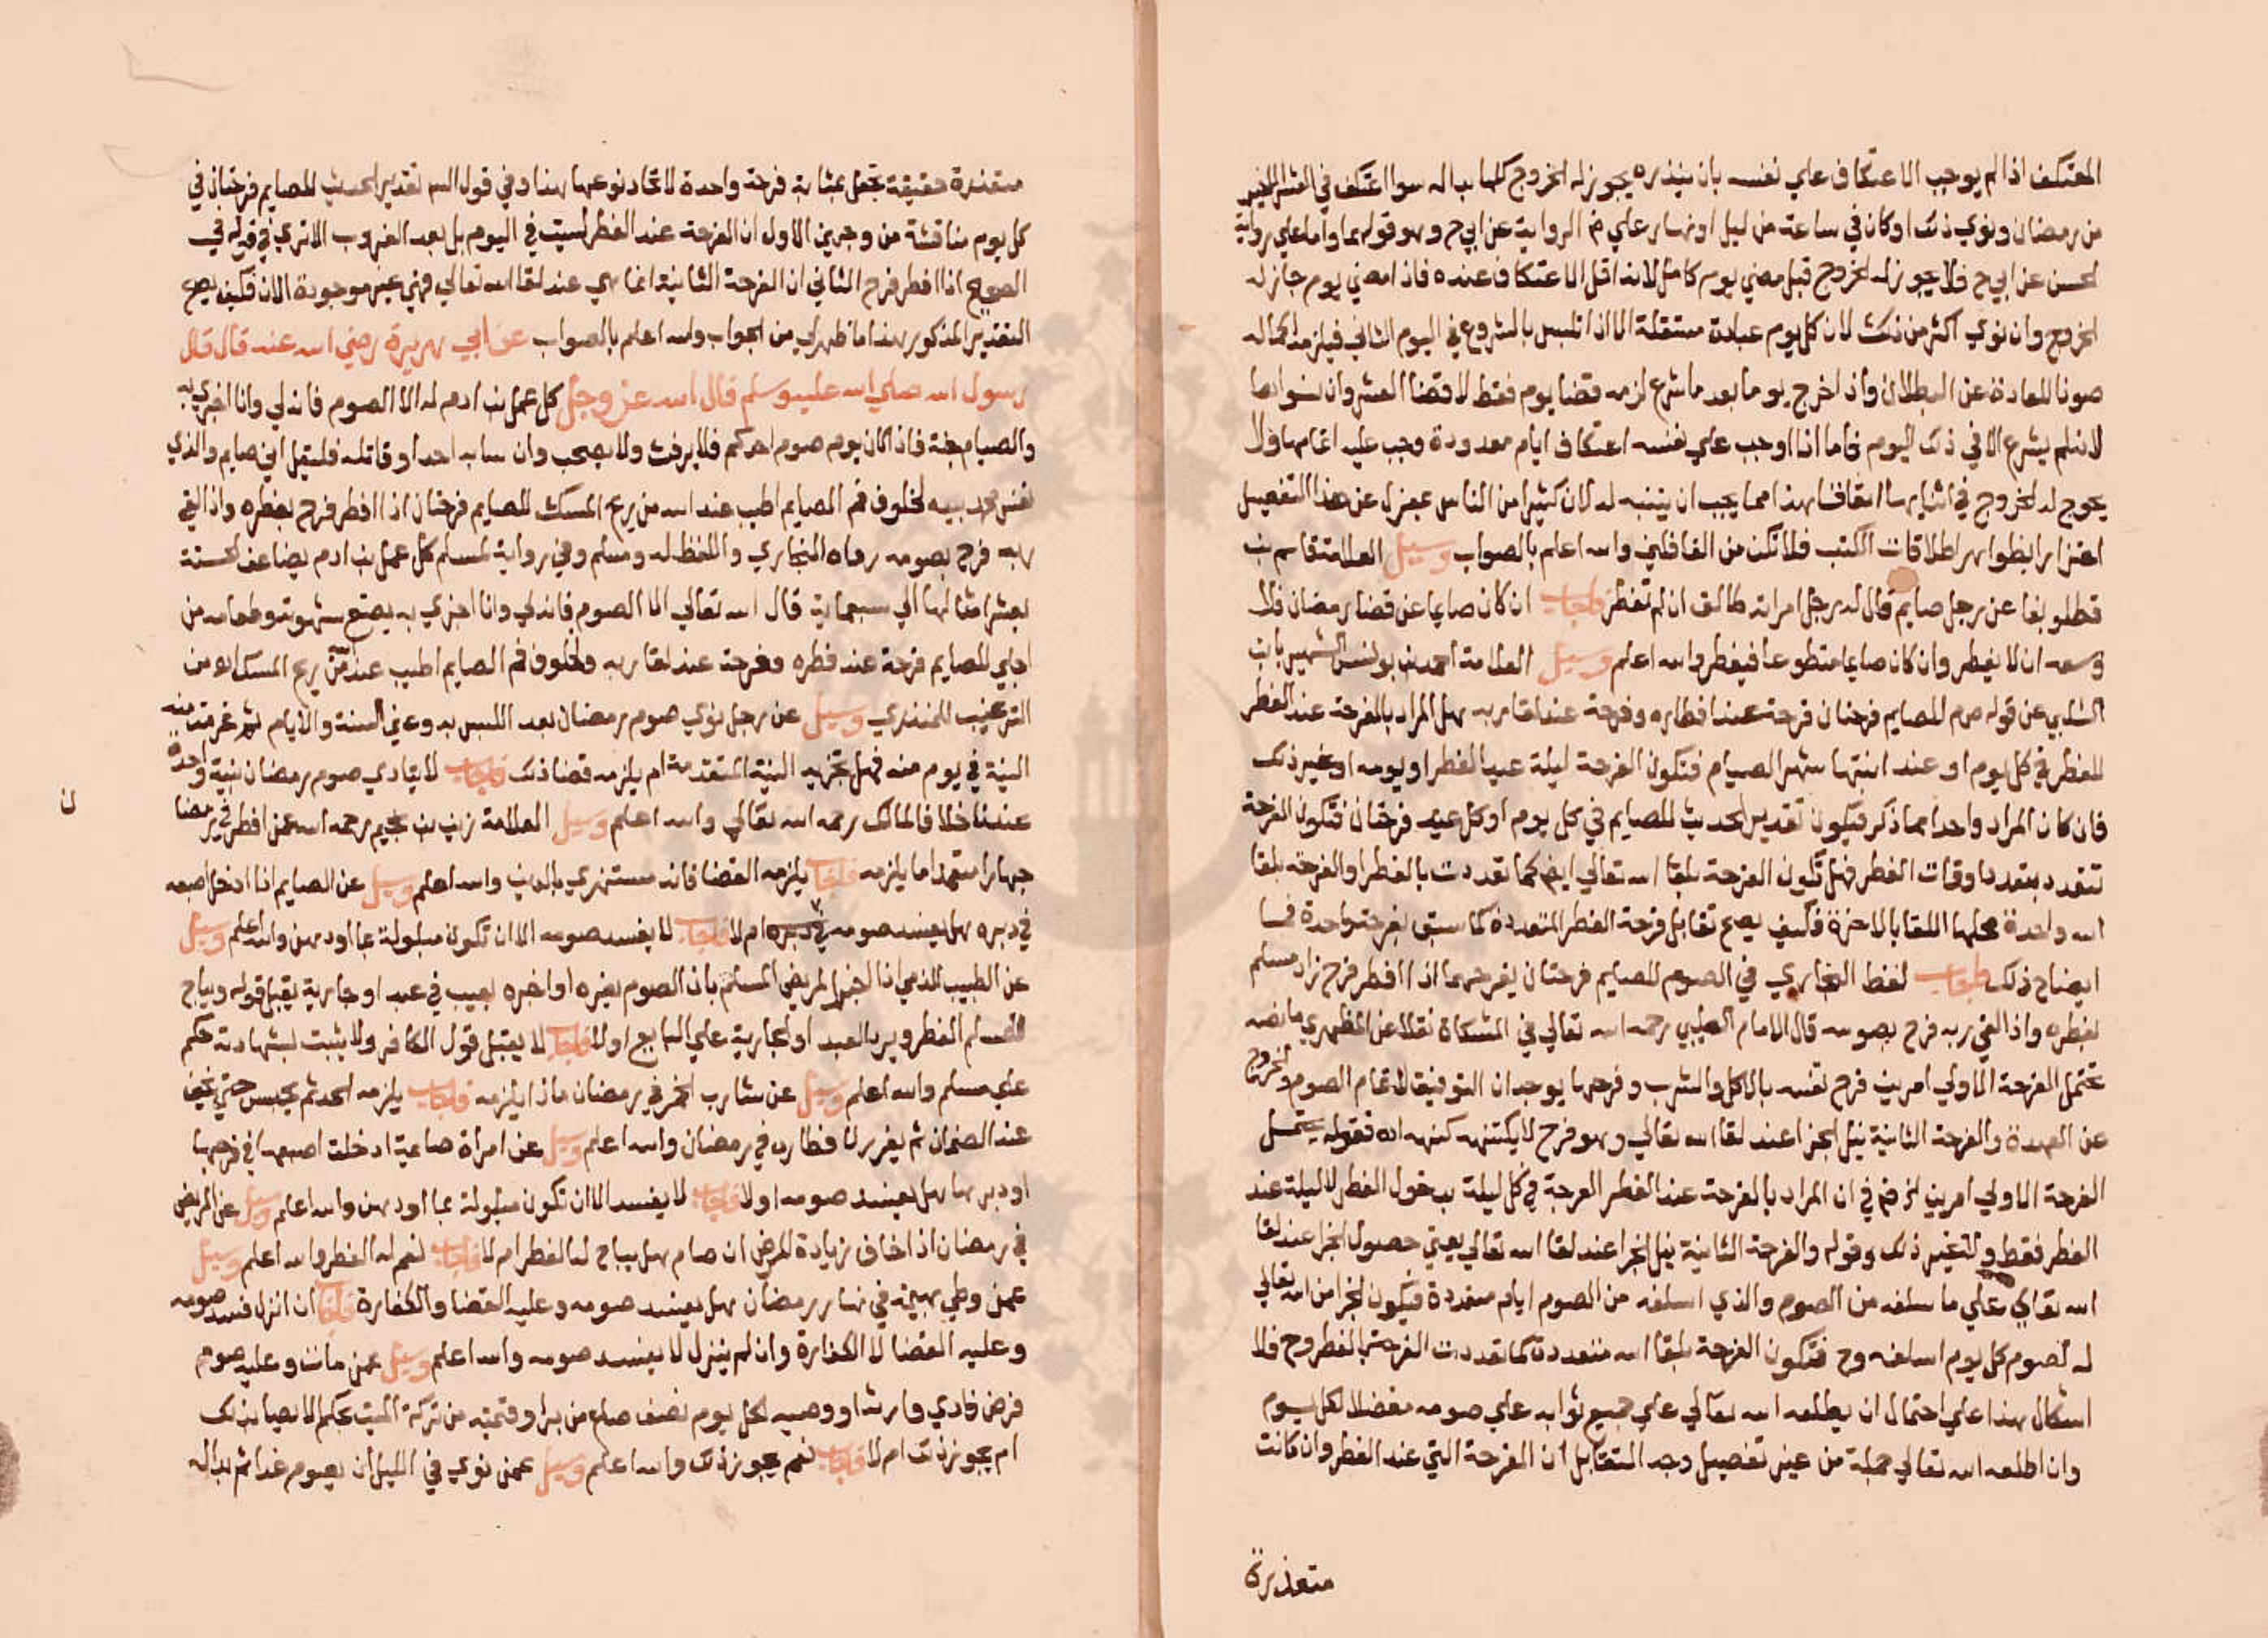 المعتكف اذا لم يوجب الاعتكاف علي نفسه بان ينذره يجوز له الخروج كلما بدا له سوا اعتكف في العشر الاخير
من رمضان ونوي ذلك او كان في ساعة من ليل او نهار علي الرواية عن ابي ح وهو قولهما واما علي رواية
الحسن عن ابي ح فلا يجوز له الخروج قبل مضي يوم كامل لانه اقل الاعتكاف عنده فاذا مضي يوم جاز له
الخروج وان نوي اكثر من ذلك لان كل يوم عبادة مستقلة الا اذا تلبس بالشروع في اليوم الثاني فيلزمه اكماله
صونا للعبادة عن البطلان واذا خرج يوما بعد ما شرع لزمه قضا يوم فقط لا قضا العشر وان نواها
لانه لم يشرع الا في ذلك اليوم واما اذا اوجب علي نفسه اعتكاف ايام معدودة وجب عليه اتمامها ولا
يجوز له الخروج في اثنايها اتفاقا هذا مما يجب ان يتنبه له لان كثيرا من الناس بمعزل عن هذا التفصيل
اغترارا بظواهر اطلاقات الكتب فلا تكن من الغافلين والله اعلم بالصواب وسيل العلامة قاسم بن
قطلوبغا عن رجل صايم قال له رجل امراته طالق ان لم تفطر فاجاب ان كان صايما عن قضا رمضان فلا
وسعه ان لا يفطر وان كان صايما متطوعا فيفطر والله اعلم وسيل العلامة احمد بن يونس الشهير بابن
الشلبي عن قوله صم للصايم فرحتان فرحة عند افطاره وفرحة عند لقا ربه هل المراد بالفرحة عند الفطر
للفطر في كل يوم او عند انتها شهر الصيام فتكون الفرحة ليلة عيد الفطر او يومه او غير ذلك
فان كان المراد واحدا مما ذكر فيكون تقدير الحديث للصايم في كل يوم او كل عيد فرحتان فتكون الفرحة
تتعدد بتعدد اوقات الفطر فهل تكون الفرحة بلقا الله تعالي ايض كما تعددت بالفطر او الفرحة بلقا
الله واحدة محلها اللقا بالاخرة فكيف يصح تقابل فرحة الفطر المتعددة كما سبق بفرحة واحدة فما
ايضاح ذلك فاجاب لفظ البخاري في الصوم للصايم فرحتان يفرحهما اذا افطر فرح زاد مسلم
بفطره واذا لقي ربه فرح بصومه قال الامام الطيبي رحمه الله تعالي في المشكاة نقلا عن المظهري ما نصه
تحتمل الفرحة الاولي امرين فرح نفسه بالاكل والشرب وفرحها بوجدان التوفيق لاتمام الصوم والخروج
عن العهدة والفرحة الثانية نيل الجزا عند لقا الله تعالي وهو فرح لا يكتنه كنهه اه فقوله يحتمل
الفرحة الاولي امرين في ان المراد بالفرحة عند الفطر الفرحة في كل ليلة بدخول الفطر لا ليلة عند
الفطر فقط ولا غير ذلك وقوله والفرحة الثانية نيل الجزا عند لقا الله تعالي يعني حصول الجزا عند لقا
الله تعالي علي ما سلفه من الصوم والذي اسلفه من الصوم ايام متعددة فيكون الجزا من الله تعالي
له لصوم كل يوم اسلفه وح فتكون الفرحة بلقا الله متعددة كما تعددت الفرحة بالفطر وح فلا
اشكال هذا علي احتمال ان يطلعه الله تعالي علي جميع ثوابه علي صومه مفصلا لكل يوم
وان اطلعه الله تعالي جملة من غير تفصيل وجه التقابل ان الفرحة التي عند الفطر وان كانت
متعذرة
متعذرة حقيقة تجعل بمثابة فرحة واحدة لاتحاد نوعها هنا وفي قول السـ تقدير الحديث للصايم فرحتان في
كل يوم مناقشة من وجهين الاول ان الفرحة عند الفطر ليست في اليوم بل بعد الغروب الا تري في قوله في
الصحيح اذا افطر فرح الثاني ان الفرحة الثانية انما هي عند لقا الله تعالي فهي غير موجودة الان فكيف يصح
التقدير المذكور هذا ما ظهر لي من الجواب والله اعلم بالصواب عن ابي هريرة رضي الله عنه قال قال
رسول الله صلي الله عليه وسلم قال الله عز وجل كل عمل بن ادم له الا الصوم فانه لي وانا اجزي به
والصيام جنة فاذا كان يوم صوم احدكم فلا يرفث ولا يصخب وان سابه احد او قاتله فليقل اني صايم والذي
نفس محمد بيده لخلوف فم الصايم اطيب عند الله من ريح المسك للصايم فرحتان اذا افطر فرح بفطره واذا لقي
ربه فرح بصومه رواه البخاري واللفظ له ومسلم وفي رواية لمسلم كل عمل بن ادم يضاعف الحسنة
بعشر امثالها الي سبعماية قال الله تعالي الا الصوم فانه لي وانا اجزي به يضع شهوته وطعامه من
اجلي للصايم فرحة عند فطره وفرحة عند لقا ربه ولخلوف فم الصايم اطيب عند الله من ريح المسك اه من
الترغيب للمنذري وسيل عن رجل نوي صوم رمضان بعد اللبس به وعين السنة والايام ثم عزمت منه
النية في يوم منه فهل تجزيه النية المتقدمة ام يلزمه قضا ذلك فاجاب لا يتادي صوم رمضان بنية واحدة
عندنا خلافا لمالك رحمه الله تعالي والله اعلم وسيل العلامة زين بن نجيم رحمه الله عمن افطر في رمضان
جهارا متعمدا ما يلزمه فاجاب يلزمه القضا فانه مستهزي بالدين والله اعلم وسيل عن الصايم اذا ادخل اصبعه
في دبره هل يفسد صومه في دبره ام لا فاجاب لا يفسد صومه الا ان تكون مبلولة بما او دهن والله اعلم وسيل
عن الطبيب الذمي اذا اخبر المريض المسلم بان الصوم يضره او اخبره بعيب في عبد او جارية يقبل قوله ويباح
للمسلم الفطر ويرد العبد او الجارية علي البايع او لا فاجاب لا يقبل قول الكافر ولا يثبت بشهادته حكم
علي مسلم والله اعلم وسيل عن شارب الخمر في رمضان ماذا يلزمه فاجاب يلزمه الحد ثم يحبس حتي يخف
عنه الضمان ثم يعزر لافطاره في رمضان والله اعلم وسيل عن امراة صايمة ادخلت اصبعها في فرجها
او دبرها هل يفسد صومها او لا فاجاب لا يفسد الا ان تكون مبلولة بما او دهن والله اعلم وسيل عن المريض
في رمضان اذا خاف زيادة المرض ان صام هل يباح له الفطر ام لا فاجاب نعم له الفطر والله اعلم وسيل
عمن وطي بهيمة في نهار رمضان هل يفسد صومه وعليه القضا والكفارة فاجاب ان انزل فسد صومه
وعليه القضا لا الكفارة وان لم ينزل لا يفسد صومه والله اعلم وسيل عمن مات وعليه صوم
فرض فادي وارثه او وصيه لكل يوم نصف صاع من بر او قيمته من تركة الميت بحكم الايصا بذلك
ام يجوز ذلك ام لا فاجاب نعم يجوز ذلك والله اعلم وسيل عمن نوي في الليل ان يصوم غدا ثم بدا له
ن